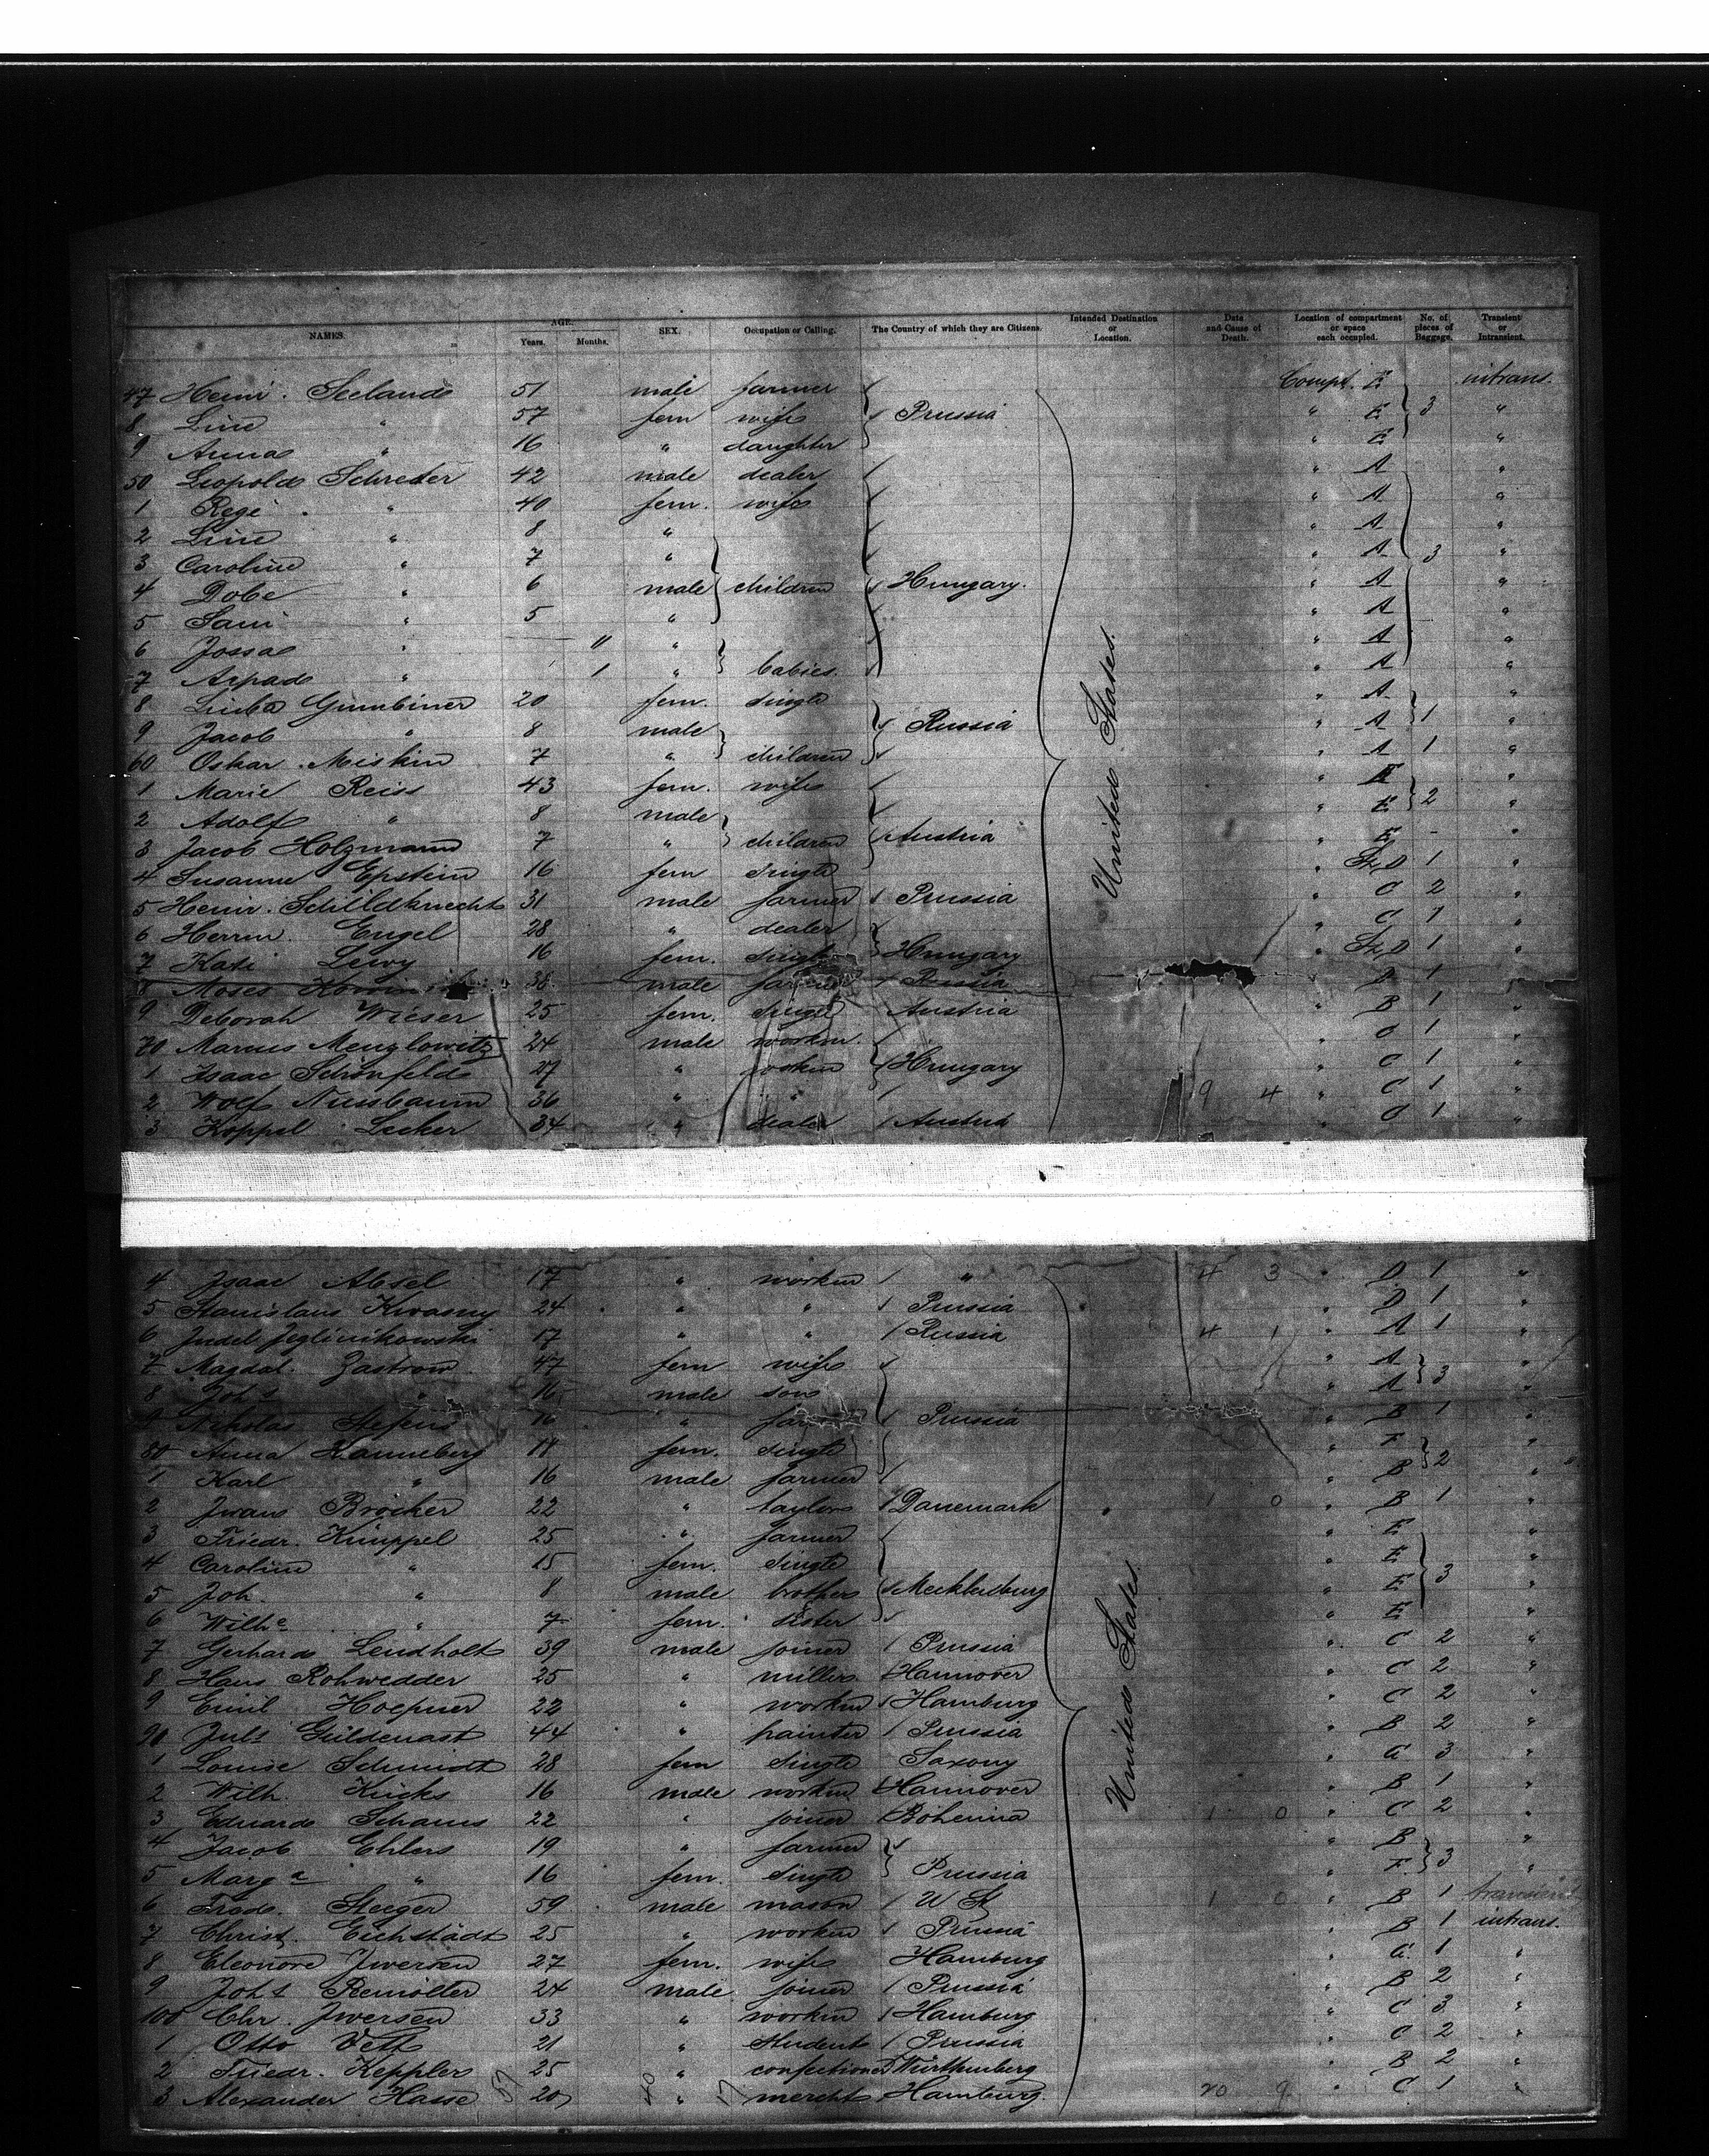 NAMES. AGE. Years. Months. SEX. Occupation or Calling. The Country of which they are Citizens. Intended Destination or Location. Date and Cause of Death. Location of compartment or space each occupied. No. of pieces of Baggage. Transient or Intransient.
47 Heinr. Seelande 51 male farmer Compt. E intrans.
8 Line " 57 fem wife Prussia " E 3 "
9 Anna " 16 " daughter " E "
50 Leopold Schreter 42 male dealer " A "
1 Regi " 40 fem. wife " A "
2 Line " 8 " " A "
3 Caroline " 7 " " A 3 "
4 Dobe " 6 male children Hungary. " A "
5 Sam " 5 " " A "
6 Jossa " 11 " " A "
7 Arpad " 1 " babies. " A "
8 Liuba Gumbiner 20 fem. single " A "
9 Jacob " 8 male Russia " A 1 "
60 Oskar Miskin 7 " children " A 1 "
1 Marie Reiss 43 fem. wife " E "
2 Adolf " 8 male " E 2 "
3 Jacob Holzmann 7 " children Austria " E - "
4 Susanne Epstein 16 fem single " D 1 "
5 Heinr. Schildknecht 31 male farmer Prussia " C 2 "
6 Herrm. Engel 28 " dealer " C 1 "
7 Kati Lewy 16 fem. single Hungary " D 1 "
8 Moses 38 male farmer Russia 1 "
9 Deborah Wieser 25 fem. single Austria " B 1 "
70 Marcus Menzlowitz 24 male workm. " C 1 "
1 Isaac Schönfeld 27 " workm Hungary " C 1 "
2 Wolf Nussbaum 36 " " 9 4 " C 1 "
3 Koppel Lecker 34 " dealer Austria C 1 "
United States.
4 Isaac Absel 17 " workm " 4 3 " D 1 "
5 Stanislaus Kwasny 24 " " Prussia " D 1 "
6 Judel Jeglinikowski 17 " " Russia 4 1 " A 1 "
7 Magdal. Zastrow 47 fem wife " A "
8 Johs " 16 male son " A 3 "
9 Nicholas Stefens 16 " farmer Prussia " B 1 "
80 Anna Kanneberg fem. single " F "
1 Karl " 16 male farmer " B 2 "
2 Iwans Bröcker 22 " taylor Danemark 1 0 " B 1 "
3 Friedr. Knüppel 25 " farmer " E "
4 Caroline " 15 fem. single " E "
5 Joh. " 8 male brother Mecklenburg " E 3 "
6 Wilhe " 7 fem. sister " E "
7 Gerhard Lendholt 39 male joiner Prussia " C 2 "
8 Hans Rohwedder 25 " miller Hannover " C 2 "
9 Emil Hoepner 22 " workm Hamburg " C 2 "
90 Juls Güldenast 44 " painter Prussia " B 2 "
1 Louise Schmidt 28 fem single Saxony " G 3 "
2 Wilh. Kücks 16 male workm Hannover " B 1 "
3 Eduard Schams 22 " joiner Bohemia 1 0 " C 2 "
4 Jacob Ehlers 19 " farmer " B "
5 Marga " 16 fem. single Prussia " F 3 "
6 Fredr. Steeger 59 male mason U St 1 0 " B 1 transient
7 Christ. Eichstädt 25 " workm Prussia " B 1 intrans.
8 Eleonore Iwersen 27 fem. wife Hamburg " G 1 "
9 Johs Remölter 24 male joiner Prussia " B 2 "
100 Chr. Iwersen 33 " workm Hamburg " C 3 "
1 Otto Vett 21 " student Prussia " C 2 "
2 Friedr. Keppler 25 " confectioner Würthemberg " B 2 "
3 Alexander Hasse 20 " mercht Hamburg. 20 9 " C 1 "
United States.